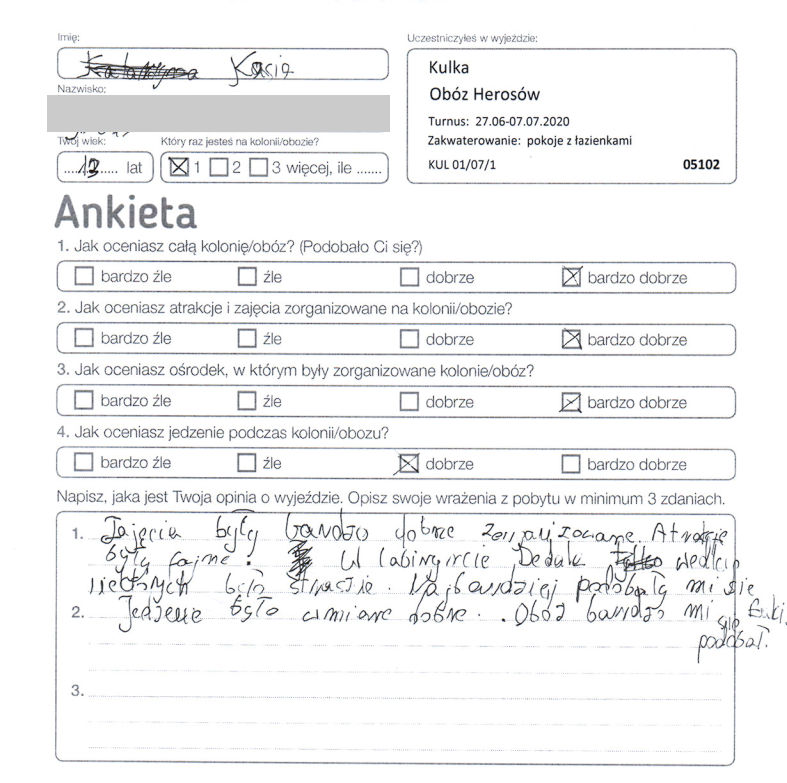 Imię:
Kasia
Nazwisko:
Twój wiek:
12 lat
Który raz jesteś na kolonii/obozie?
1 2 3 więcej, ile .......
Uczestniczyłeś w wyjeździe:
Kulka
Obóz Herosów
Turnus: 27.06-07.07.2020
Zakwaterowanie: pokoje z łazienkami
KUL 01/07/1 05102
Ankieta
1. Jak oceniasz całą kolonię/obóz? (Podobało Ci się?)
bardzo źle źle dobrze bardzo dobrze
2. Jak oceniasz atrakcje i zajęcia zorganizowane na kolonii/obozie?
bardzo źle źle dobrze bardzo dobrze
3. Jak oceniasz ośrodek, w którym były zorganizowane kolonie/obóz?
bardzo źle źle dobrze bardzo dobrze
4. Jak oceniasz jedzenie podczas kolonii/obozu?
bardzo źle źle dobrze bardzo dobrze
Napisz, jaka jest Twoja opinia o wyjeździe. Opisz swoje wrażenia z pobytu w minimum 3 zdaniach.
1. Zajęcia były bardzo dobrze zorganizowane. Atrakcje
były fajne. W labiryncie Dedala według
niektórych było strasznie. Najbardziej podobały mi się
2. Jedzenie było w miarę dobre. Obóz bardzo mi się
podobał.
3.